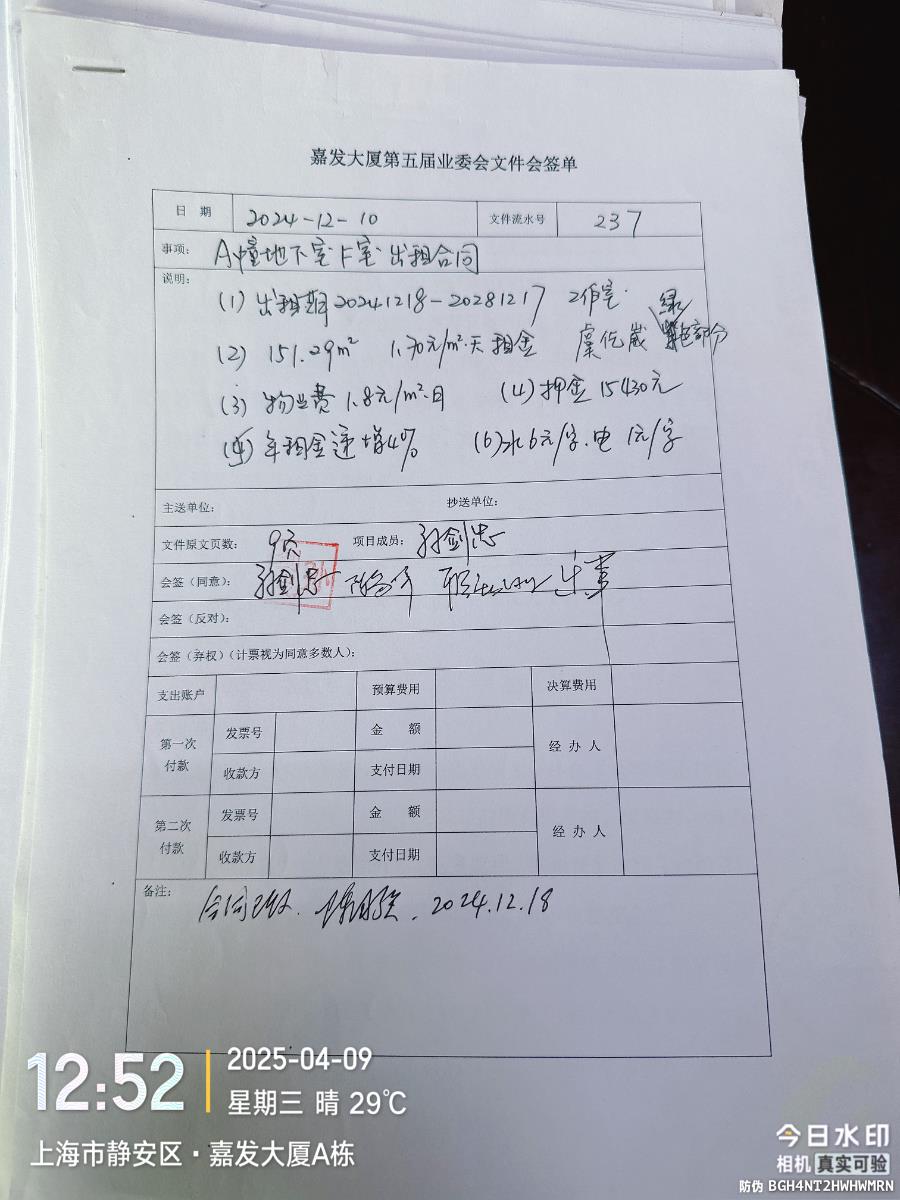 嘉发大厦第五届业委会文件会签单
日 期 2024-12-10 文件流水号 237
事项: A幢地下室F室出租合同
说明:
(1) 出租期20241218-20281217 工作室 绿
(2) 151.29m² 1.70元/m²·天 租金 虞仡崴 色部分
(3) 物业费1.8元/m²·月 (4) 押金15430元
年租金递增4% (6) 水6元/字.电 1元/字
主送单位: 抄送单位:
文件原文页数: 9页 项目成员: 孙剑忠
会签(同意): 孙剑忠
会签(反对):
会签(弃权)(计票视为同意多数人):
支出账户 预算费用 决算费用
第一次付款 发票号 金 额 经 办 人
收款方 支付日期
第二次付款 发票号 金 额 经 办 人
收款方 支付日期
备注:
合同 2024.12.18
12:52 2025-04-09
星期三 晴 29℃
上海市静安区·嘉发大厦A栋
今日水印
相机 真实可验
防伪 BGH4NT2HWHWMRN